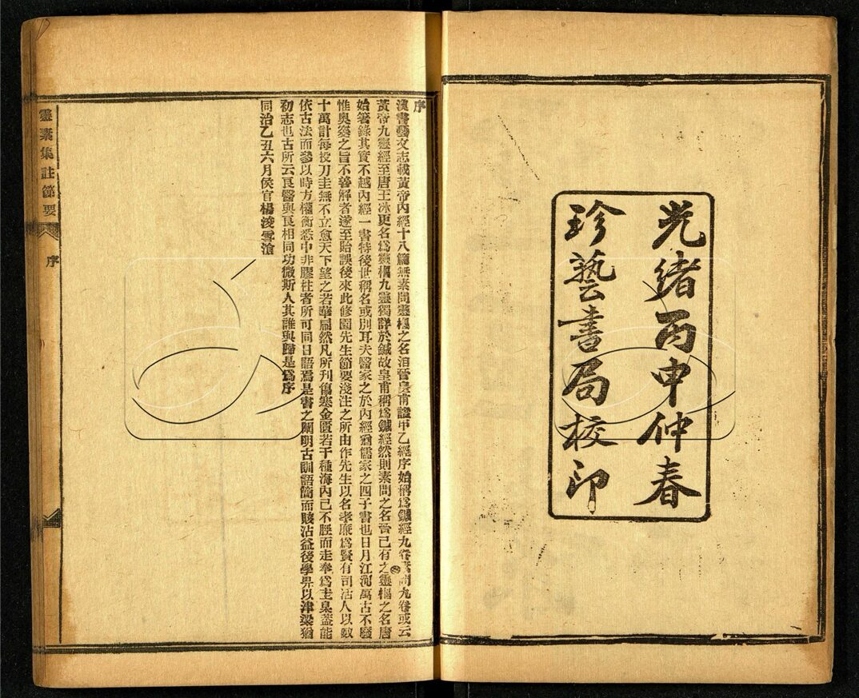 光緒丙申仲春
珍藝書局校印
序
漢書藝文志載黃帝內經十八篇無素問靈樞之名洎晉皇甫謐甲乙經序始稱爲鍼經九卷素問九卷或云
黃帝九靈經至唐王冰更名爲靈樞九靈獨詳於鍼故皇甫稱爲鍼經然則素問之名晉已有之靈樞之名唐
始著錄其實不越內經一書特後世稱名或別耳夫醫家之於內經猶儒家之四子書也日月江河萬古不廢
惟奧窔之旨不善解者遂至貽誤後來此修園先生節要淺注之所由作先生以名孝廉爲賢有司活人以數
十萬計每投刀圭無不立愈天下望之若華扁然凡所刊傷寒金匱若干種海內已不脛而走奉爲圭臬茲能
依古法而參以時方權衡悉中非膠柱者所可同日語焉是書之闡明古訓語簡而賅沾益後學畀以津梁猶
初志也古所云良醫與良相同功微斯人其誰與歸是爲序
同治乙丑六月侯官楊浚雪滄
靈素集註節要
序